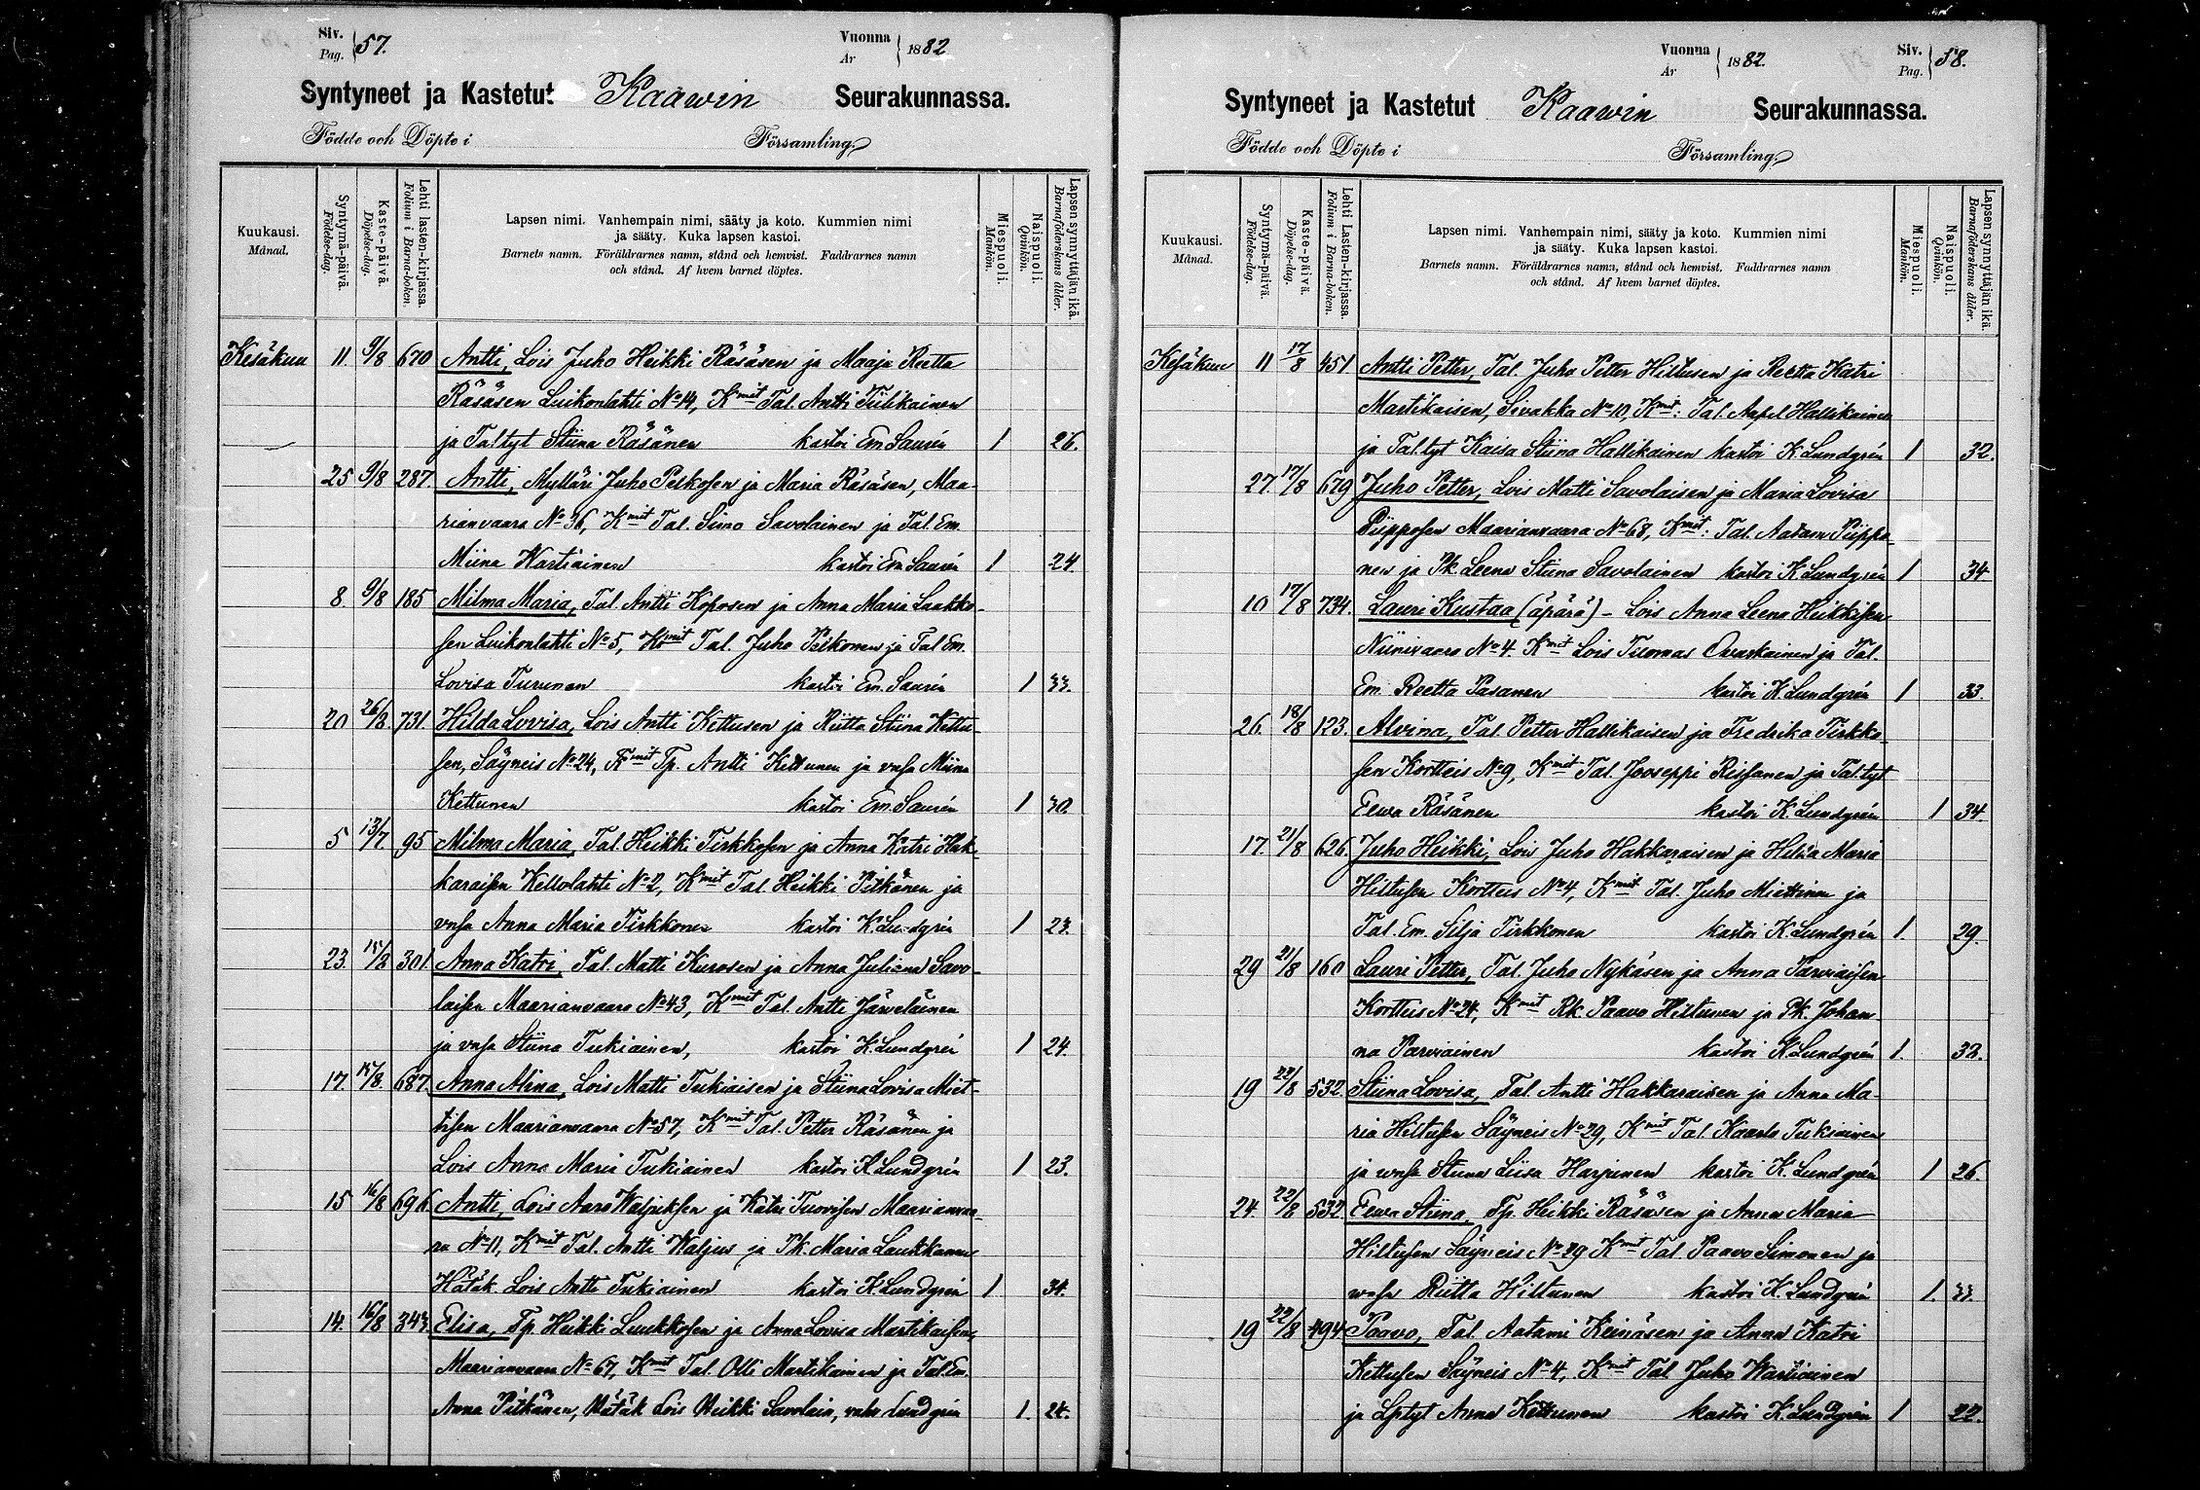 Siv.
Pag. 57.
Vuonna
År 1882
Syntyneet ja Kastetut Kaawin Seurakunnassa.
Födde och Döpte i Församling
Kuukausi.
Månad.
Syntymä-päivä.
Födelse-dag.
Kaste-päivä.
Döpelse-dag.
Lehti lasten-kirjassa.
Folium i Barna-boken.
Lapsen nimi. Vanhempain nimi, sääty ja koto. Kummien nimi
ja sääty. Kuka lapsen kastoi.
Barnets namn. Föräldrarnes namn, stånd och hemvist. Faddrarnes namn
och stånd. Af hvem barnet döptes.
Miespuoli.
Mankön.
Naispuoli.
Qvinkön.
Lapsen synnyttäjän ikä.
Barnaföderskans ålder.
Kesäkuu 11. 9/8 670 Antti, Lois Juho Heikki Räsäsen ja Maaja Reetta
Räsäsen Luikonlahti No 14, Kmit Tal. Antti Tulikainen
ja Taltyt Stiina Räsänen kastoi Em. Saurén 1 26.
25 9/8 287 Antti, Mylläri Juho Pelkosen ja Maria Räsäsen, Maa-
rianvaara No 36, Kmit Tal. Simo Savolainen ja Tal. Em.
Miina Wartiainen kastoi Em Saurén 1 24.
8. 9/8 185 Milma Maria, Tal. Antti Koposen ja Anna Maria Laakko-
sen Luikonlahti No 5, Kmit Tal. Juho Pitkonen ja Tal Em.
Lovisa Turunen kastoi Em. Saurén 1 33.
20 26/8. 731. Hilda Lovisa, Lois Antti Kettusen ja Riitta Stiina Kettu-
sen, Säyneis No 24, Kmit Tp. Antti Kettunen ja vmsa Miina
Kettunen kastoi Em. Saurén 1 30.
5 13/7. 95 Milma Maria, Tal. Heikki Tirkkosen ja Anna Katri Hak-
karaisen Kellolahti No 2, Kmit Tal. Heikki Pitkänen ja
vmsa Anna Maria Tirkkonen kastoi K. Lundgrén 1 23.
23. 15/8 301 Anna Katri, Tal. Matti Kurosen ja Anna Juliana Savo-
laisen Maarianvaara No 43, Kmit Tal. Antti Järveläinen
ja vmsa Stiina Tukiainen, kastoi K. Lundgrén 1 24.
17. 15/8. 687. Anna Alina, Lois Matti Tukiaisen ja Stiina Lovisa Miet-
tisen Maarianvaara No 57, Kmit Tal. Petter Räsänen ja
Lois Anna Maria Tukiainen kastoi K Lundgrén 1 23.
15 16/8 696. Antti, Lois Aaro Waljuksen ja Katri Tuovisen Maarianvaa-
ra No 11, Kmit Tal. Antti Waljus ja Pk. Maria Laukkanen
Hätäk. Lois Antti Tukiainen kastoi K Lundgrén 1 34.
14. 16/8 343. Elisa, Tp. Heikki Luukkosen ja Anna Lovisa Martikaisen,
Maarianvaara No 67, Kmit Tal. Olli Martikainen ja Tal Em.
Anna Pitkänen, Hätäk Lois Heikki Savolain, vahv Lundgrén 1. 24.
Vuonna
År 1882.
Siv.
Pag. 58.
Syntyneet ja Kastetut Kaawin Seurakunnassa.
Födde och Döpte i Församling
Kuukausi.
Månad.
Syntymä-päivä.
Födelse-dag.
Kaste-päivä.
Döpelse-dag.
Lehti Lasten-kirjassa
Folium i Barna-boken.
Lapsen nimi. Vanhempain nimi, sääty ja koto. Kummien nimi
ja sääty. Kuka lapsen kastoi.
Barnets namn. Föräldrarnes namn, stånd och hemvist. Faddrarnes namn
och stånd. Af hvem barnet döptes.
Miespuoli.
Mankön.
Naispuoli.
Qvinkön.
Lapsen synnyttäjän ikä.
Barnaföderskans ålder.
Kesäkuu 11 17/8 451 Antti Petter, Tal. Juho Petter Hiltusen ja Reetta Katri
Martikaisen, Sivakka No 10, Kmit: Tal. Aapel Hallikainen
ja Tal.tyt Kaisa Stiina Hallikainen kastoi K. Lundgrén 1 32.
27. 17/8 679 Juho Petter, Lois Matti Savolaisen ja Maria Lovisa
Piipposen Maarianvaara No 68, Kmit: Tal. Aatam Piippo-
nen ja Pk. Leena Stiina Savolainen kastoi K. Lundgrén 1 34
10 17/8 734. Lauri Kustaa (äpärä) - Lois Anna Leena Heikkisen
Niinivaara No 4. Kmit Lois Tuomas Ovaskainen ja Tal.
Em. Reetta Pasanen kastoi K. Lundgrén 1 33.
26. 18/8 123. Alvina, Tal. Petter Hallikaisen ja Fredrika Tirkko-
sen Kortteis No 9, Kmit Tal. Jooseppi Rissanen ja Tal.tyt
Eewa Räsänen kastoi K. Lundgrén 1 34.
17. 21/8 626. Juho Heikki, Lois Juho Hakkaraisen ja Hilda Maria
Hiltusen Kortteis No 4, Kmit Tal. Juho Miettinen ja
Tal. Em. Silja Tirkkonen kastoi K. Lundgrén 1. 29.
29 21/8 160 Lauri Petter, Tal. Juho Nykäsen ja Anna Parviaisen
Kortteis No 24, Kmit Rk. Paavo Hiltunen ja Pk. Johan-
na Parviainen kastoi K. Lundgrén 1. 38.
19 22/8 532. Stiina Lovisa, Tal. Antti Hakkaraisen ja Anna Ma-
ria Hiltusen Säyneis No 29, Kmit Tal. Kaarlo Tukiainen
ja vmsa Stiina Liisa Harjunen kastoi K. Lundgrén 1 26.
24. 22/8 532. Eewa Stiina, Tp. Heikki Räsäsen ja Anna Maria
Hiltusen Säyneis No 29 Kmit Tal. Paavo Simonen ja
vmsa Riitta Hiltunen kastoi K. Lundgrén 1. 33.
19 22/8 494 Paavo, Tal. Aatami Keinäsen ja Anna Katri
Kettusen Säyneis No 4, Kmit Tal Juho Wartiainen
ja Lptyt Anna Kettunen kastoi K. Lundgrén 1 22.